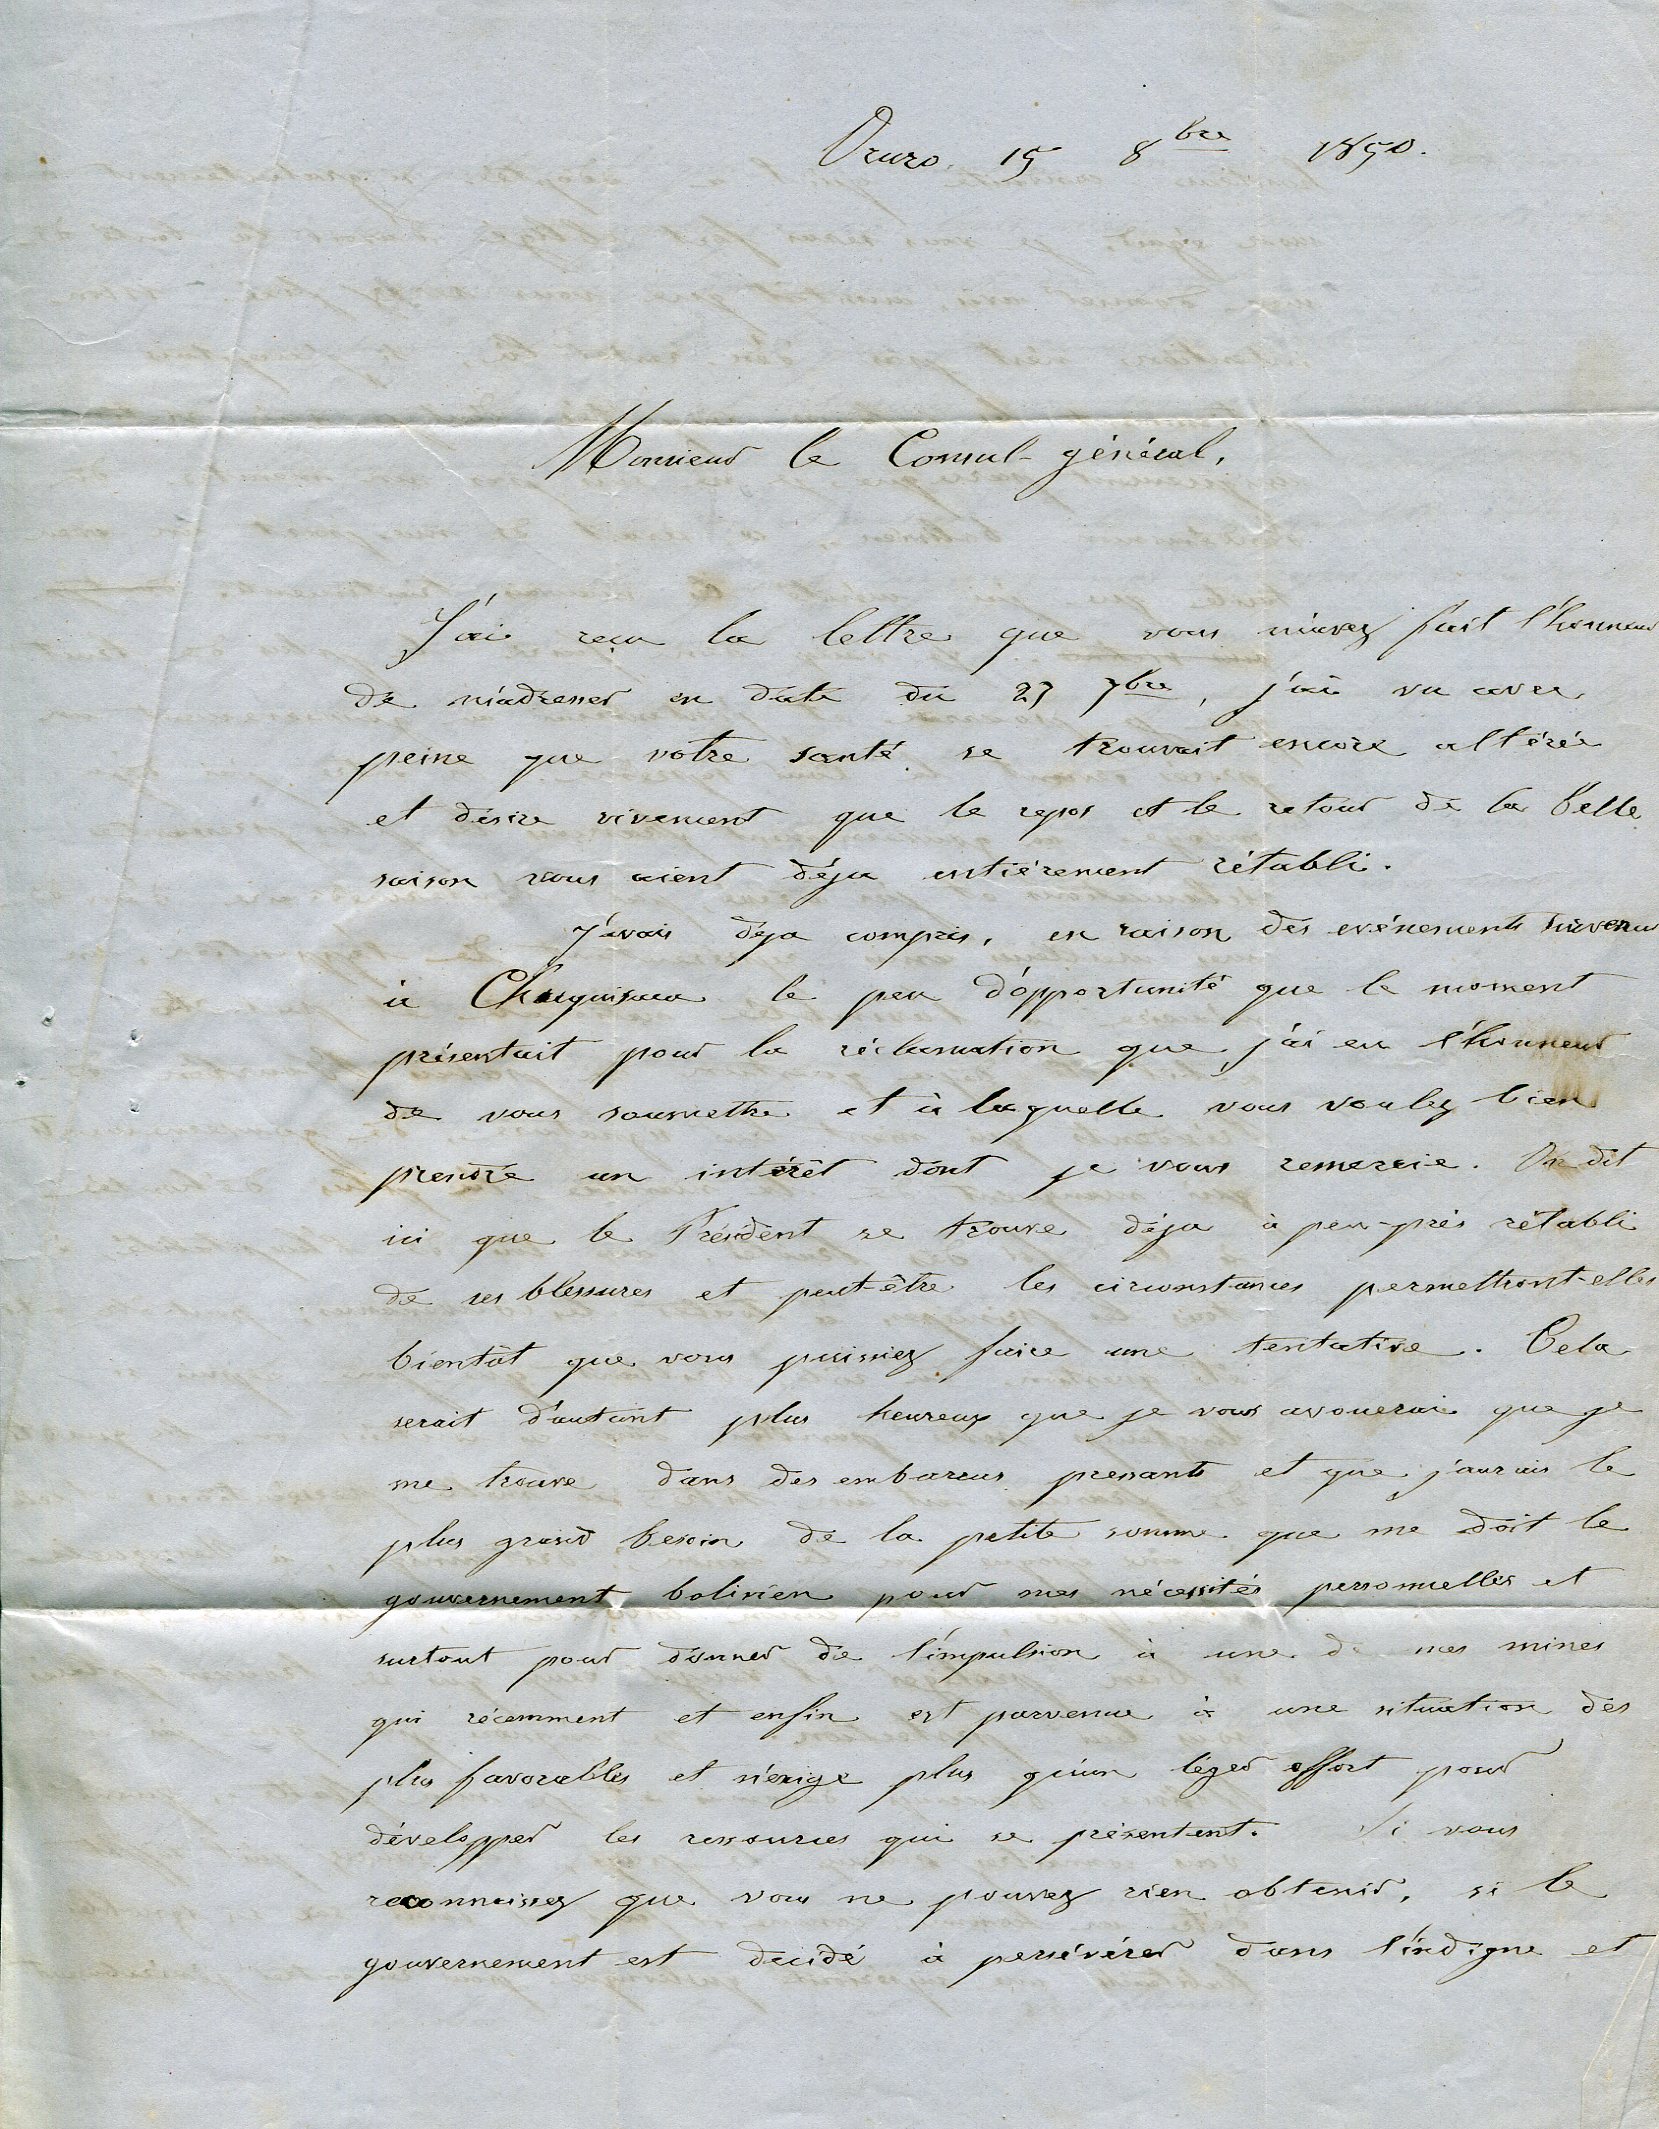 Oruro. 15 8bre 1850.
Monsieur le Consul-général,
J'ai reçu la lettre que vous m'avez fait l'honneur
de m'adresser en date du 27 7bre, j'ai vu avec
peine que votre santé se trouvait encore altérée
et désire vivement que le repos et le retour de la belle
saison vous aient déja entièrement rétabli.
J'avais déja compris, en raison des evénements survenus
à Chuquisaca le peu d'opportunité que le moment
présentait pour la réclamation que j'ai eu l'honneur
de vous soumettre et à laquelle vous voulez bien
prendre un intérêt dont je vous remercie. On dit
ici que le Président se trouve déja à peu-près rétabli
de ses blessures et peut-être les circonstances permettront-elles
bientôt que vous puissiez faire une tentative. Cela
serait d'autant plus heureux que je vous avouerai que je
me trouve dans des embarras pressants et que j'aurais le
plus grand besoin de la petite somme que me doit le
gouvernement bolivien pour mes nécessités personnelles et
surtout pour donner de l'impulsion à une de mes mines
qui récemment et enfin est parvenue à une situation des
plus favorables et n'exige plus qu'un léger effort pour
développer les ressources qui se présentent. Si vous
reconnaissez que vous ne pouvez rien obtenir, si le
gouvernement est décidé à persévérer dans l'indigne et